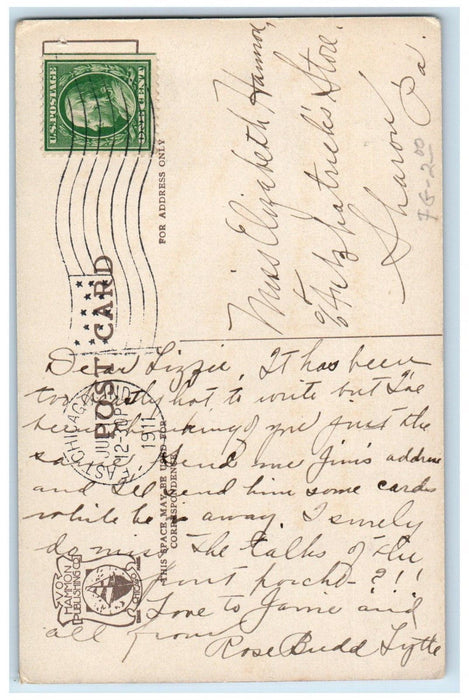 U.S. POSTAGE
ONE CENT
FOR ADDRESS ONLY
POST CARD
EAST CHICAGO, IND.
JUL
12-30P
1911
Miss Elizabeth Hammon,
Fitzpatrick's Store.
Sharon
Pa.
75-2 00
THIS SPACE MAY BE USED FOR
CORRESPONDENCE
V.O.
HAMMON
PUBLISHING CO.
CHICAGO
Dear Lizzie, It has been
too hot to write but I've
been thinking of you just the
same. Send me Jim's address
and I'll send him some cards
while he is away. I surely
do miss the talks of the
front porch - ? ! !
Love to Jamie and
all from
Rose Budd Lytle